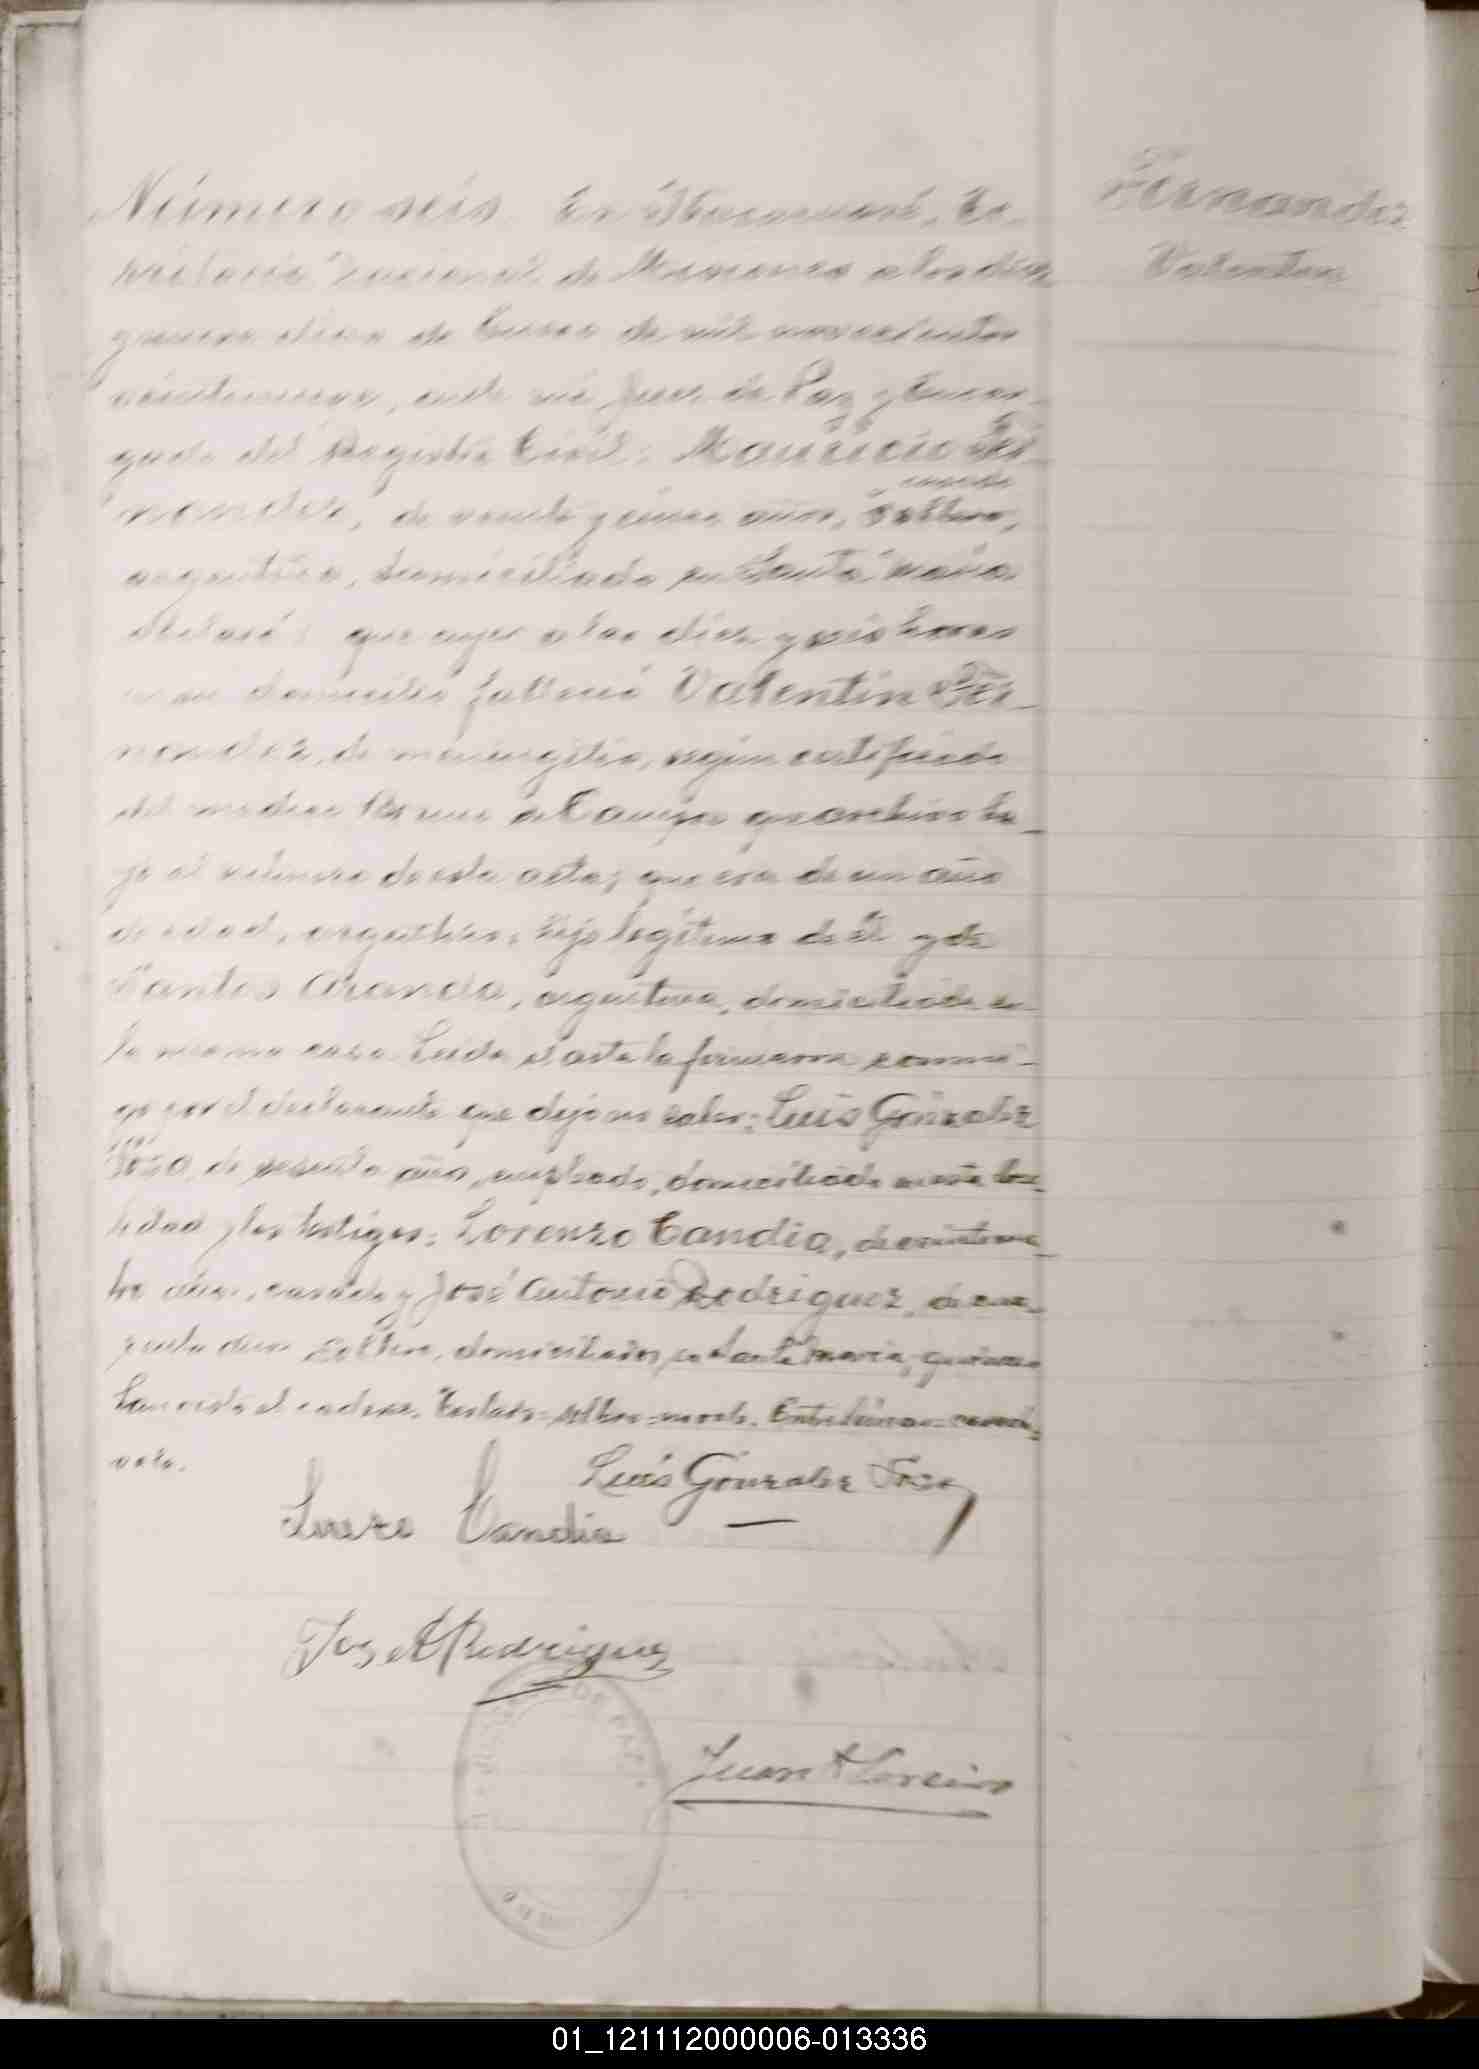 Número seis. En Itacaruaré, Te-
rritorio Nacional de Misiones a los diez
y nueve días de Enero de mil novecientos
veintinueve, ante mí Juez de Paz y Encar-
gado del Registro Civil: Mauricio Fer-
casado
nandez, de veinte y cinco años, soltero,
argentino, domiciliado en Santa María
declaró: que ayer a las diez y seis horas
en su domicilio falleció Valentín Fer-
nandez, de meningitis, según certificado
del medico de Campos que archivo ba-
jo el número de esta acta; que era de un año
de edad, argentino, hijo legítimo de él y de
Santos Aranda, argentina, domiciliada en
la misma casa. Leída el acta la firmaron conmi-
go por el declarante que dijo no saber: Luis Gonzalez
Sosa, de años, empleado, domiciliado en esta loca-
lidad y los testigos: Lorenzo Candia, de veinticua-
tro años, casado y José Antonio Rodriguez, de cua-
renta años soltero, domiciliados en Santa María, quienes
han visto el cadaver. Testado=soltero=no vale. Entrelíneas=casado
vale.
Luis Gonzalez Sosa
Lorenzo Candia
José A Rodriguez
Juan A Loreiro
Fernandez
Valentín
DE PAZ
01_121112000006-013336